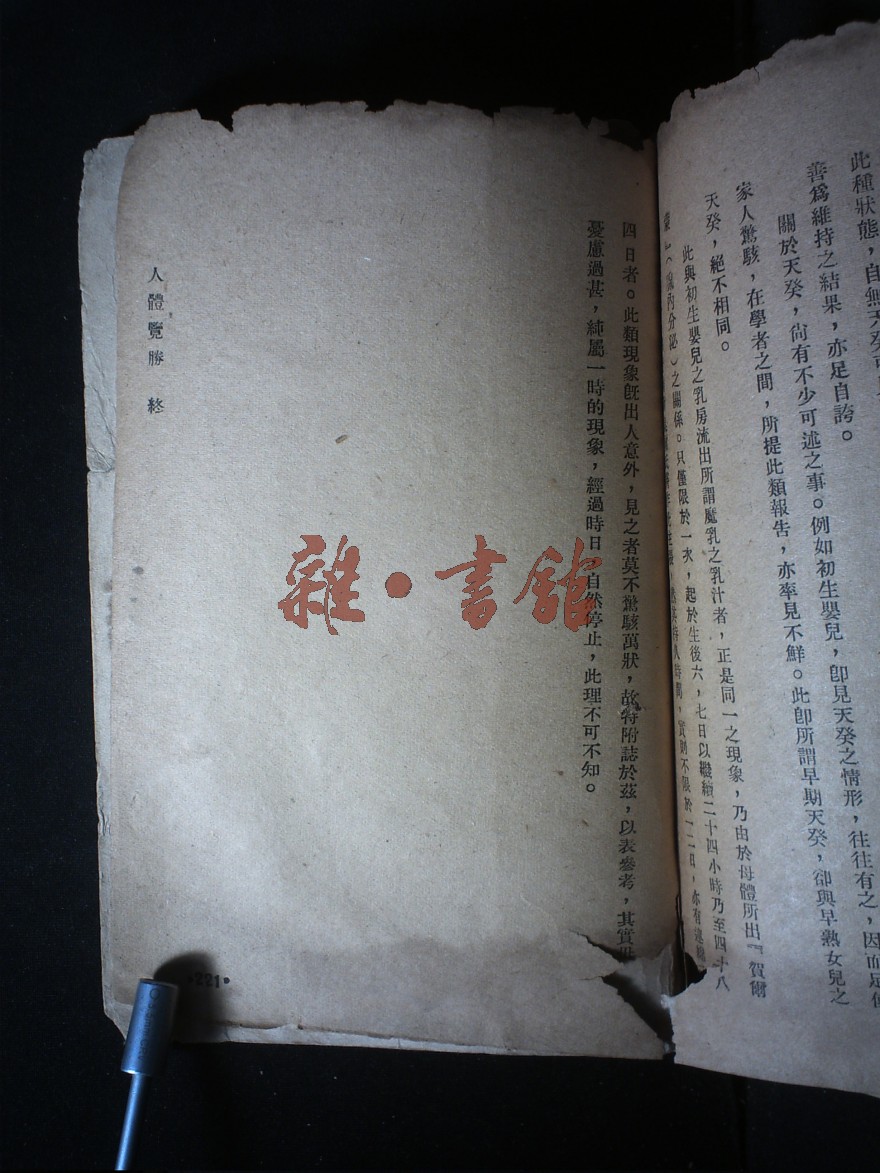 此種狀態，自無天癸可
善爲維持之結果，亦足自誇。
關於天癸，尙有不少可述之事。例如初生嬰兒，卽見天癸之情形，往往有之，因而足使
家人驚駭，在學者之間，所提此類報告，亦率見不鮮。此卽所謂早期天癸，卻與早熟女兒之
天癸，絕不相同。
此與初生嬰兒之乳房流出所謂魔乳之乳汁者，正是同一之現象，乃由於母體所出『賀爾
內分泌）之關係。只僅限於一次，起於生後六，七日以繼續二十四小時乃至四十八
時間，實則不限於一二日，亦有連續
四日者。此類現象旣出人意外，見之者莫不驚駭萬狀，故特附誌於茲，以表參考，其實毋
憂慮過甚，純屬一時的現象，經過時日，自然停止，此理不可不知。
人體覽勝 終
•221•
雜•書館